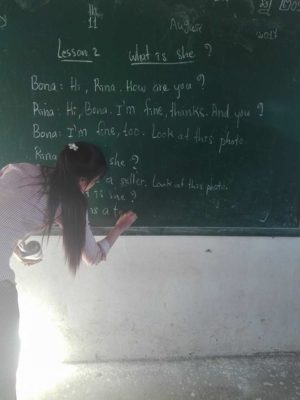 11
August
2017
Lesson 2 What is she ?
Bona: Hi, Rina. How are you ?
Rina: Hi, Bona. I'm fine, thanks. And you ?
Bona: I'm fine, too. Look at this photo.
Rina she ?
a seller. Look at this photo.
is she ?
is a te